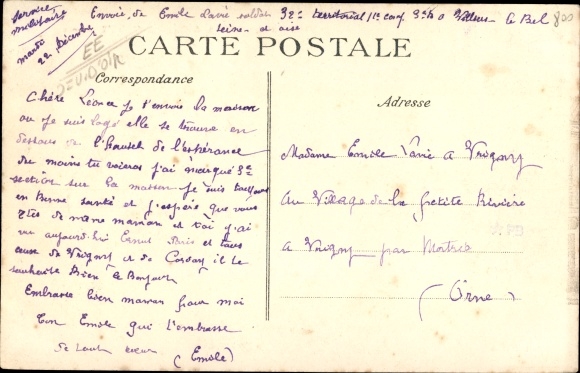 Service militaire
mardi 22 Décembre
Envoie de Emile soldat 32e territorial 11e Villiers le Bel
Seine et oise
800
EE
CARTE POSTALE
Correspondance
Adresse
Chère Léonce je t'envois la maison
ou je suis logé elle se trouve en
dessous de l'hautel de l'espérance
du moins tu voieras j'ai marqué 3e
section sur la maison je suis toujours
en bonne santé et j'espère que vous
êtes de même maman et toi j'ai
vu aujourd'hui Ernest et tous
ceux de Vrigny et de il te
souhaite Bien le Bonjour
Embrasse bien maman pour moi
Ton Emile qui t'embrasse
de tout cœur (Emile)
Madame Emile a Vrigny
Au Village de la petite Rivière
a Vrigny par Mortrée
(Orne)